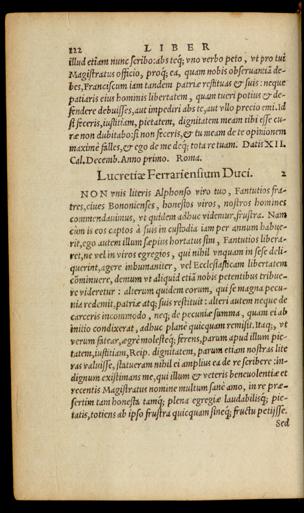 122 LIBER
illud etiam nunc scribo: abs teq́; vno verbo peto, vt pro tui
Magistratus officio, proq́; ea, quam nobis obseruantiā de-
bes, Franciscum iam tandem patriæ restituas & suis: neque
patiaris eius hominis libertatem, quam tueri potius & de-
fendere debuisses, aut impediri abs te, aut vllo precio emi. Id
si feceris, iustitiam, pietatem, dignitatem meam tibi esse cu-
ræ non dubitabo: si non feceris, & tu meam de te opinionem
maximè falles, & ego de me deq́; tota re tuam. Datis XII.
Cal. Decemb. Anno primo. Roma.
Lucretiæ Ferrariensium Duci. 2
NON vnis literis Alphonso viro tuo, Fantutios fra-
tres, ciues Bononienses, honestos viros, nostros homines
commendauimus, vt quidem adhuc videmur, frustra. Nam
cùm is eos captos à suis in custodia iam per annum habue-
rit, ego autem illum sæpius hortatus sim, Fantutios libera-
ret, ne vel in viros egregios, qui nihil vnquam in sese deli-
querint, agere inhumaniter, vel Ecclesiasticam libertatem
cōminuere, demum vt aliquid etiā nobis petentibus tribue-
re videretur: alterum quidem eorum, qui se magna pecu-
nia redemit, patriæ atq́; suis restituit: alteri autem neque de
carceris incommodo, neq́; de pecuniæ summa, quam ei ab
initio condixerat, adhuc planè quicquam remisit. Itaq́;, vt
verum fatear, ægrè molesteq́; ferens, parum apud illum pie-
tatem, iustitiam, Reip. dignitatem, parum etiam nostras lite
ras valuisse, statueram nihil ei amplius ea de re scribere: in-
dignum existimans me, qui illum & veteris beneuolentiæ et
recentis Magistratus nomine multum sanè amo, in re præ-
sertim tam honesta tamq́; plena egregiæ laudabilisq́; pie-
tatis, toties ab ipso frustra quicquam sineq́; fructu petijsse.
Sed